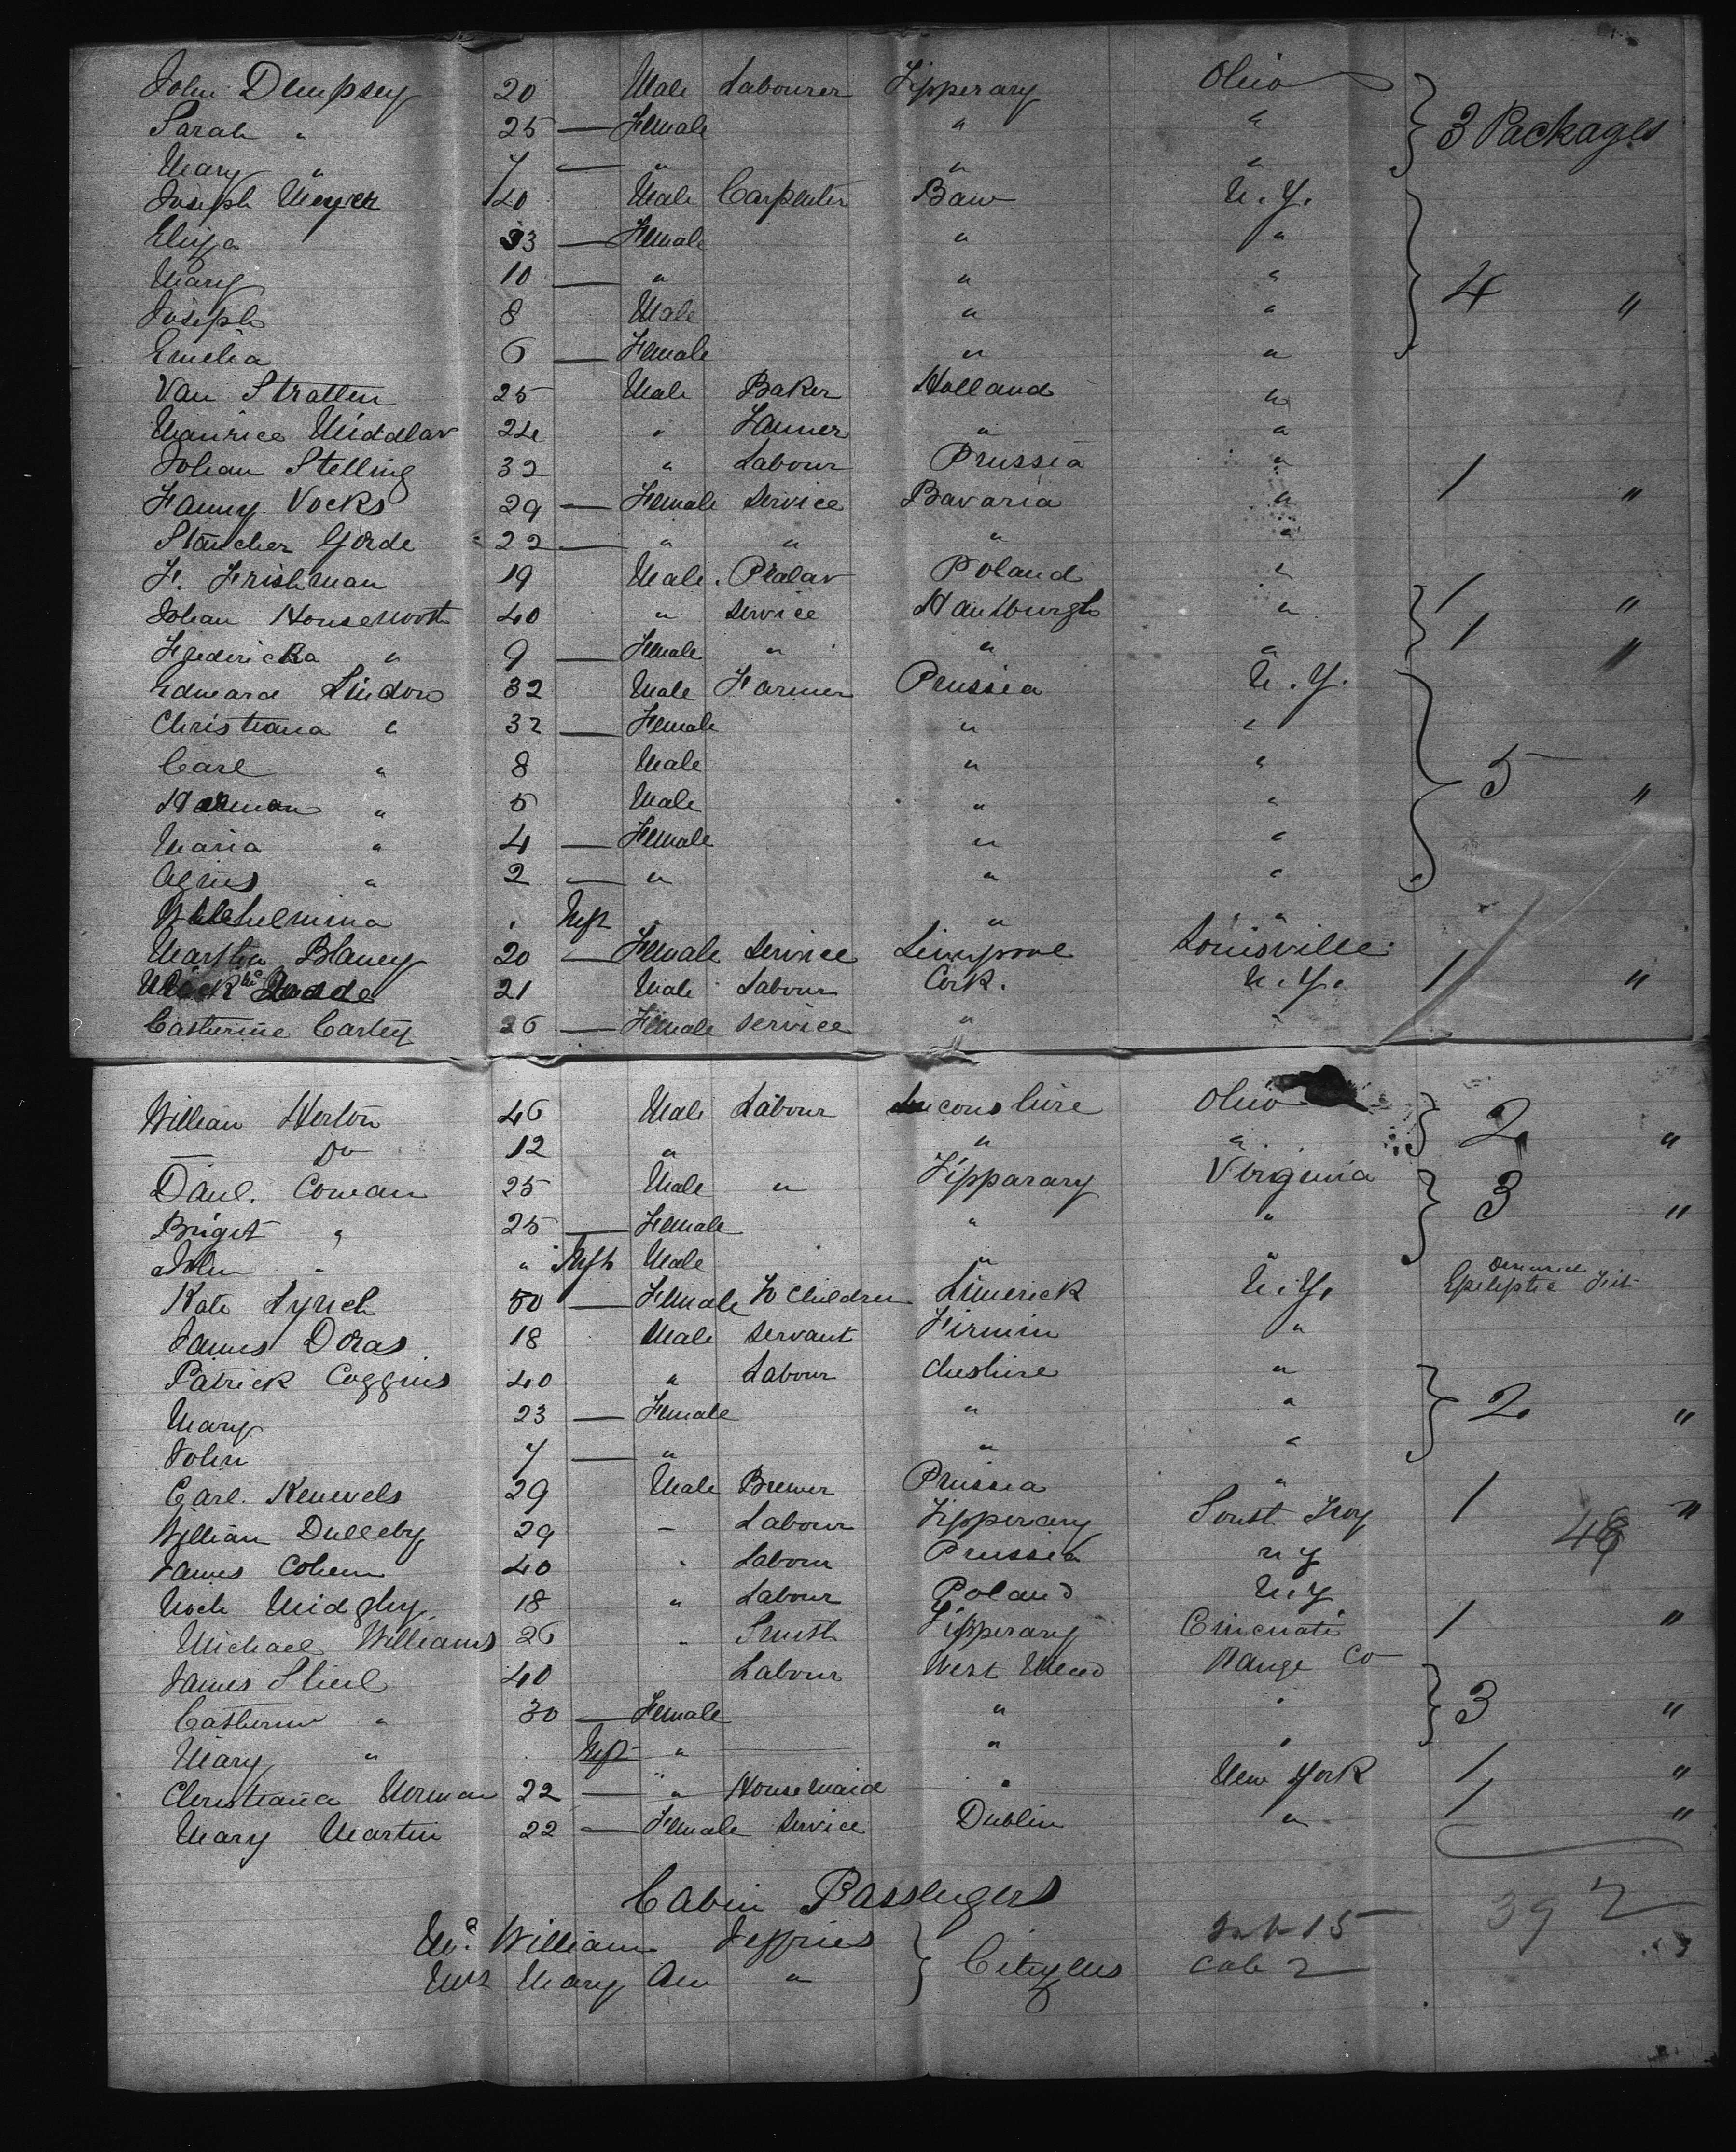 John Dempsey 20 Male Labourer Tipperary Ohio
Sarah " 25 — Female " " 3 Packages
Mary " 7 — " " "
Joseph Meyer 40 Male Carpenter Baw N. Y.
Eliza 33 — Female " "
Mary 10 — " " " 4 "
Joseph 8 Male " "
Emelia 6 — Female " "
Van Stratten 25 Male Baker Holland "
Maurice Middlar 24 " " "
Johan Stelling 32 " Labour Prussia " 1 "
Fanny Vocks 29 — Female Service Bavaria "
Gorde 22 — " " " "
F. Frishman 19 Male Poland "
Johan Houseworth 40 " Service Hamburgh " 1 "
Fredericka " 9 — Female " " " 1 "
Edward Lindow 32 Male Farmer Prussia N. Y.
Christiana " 32 — Female " "
Carl " 8 Male " " 5 "
Herman " 5 Male " "
Maria " 4 — Female " "
Agnes " 2 — " " "
Wilhelmina " Inft " " "
Martha Blaney 20 — Female Service Liverpool Louisville
21 Male Labour Cork. N. Y. 1 "
Catherine Cartey 26 — Female Service " "
William Horton 46 Male Labour Linconshire Ohio 2 "
— Do 12 " " "
Danl. Cowan 25 Male " Tipparary Virginia 3 "
Briget " 25 — Female " "
John " " Inft Male " "
Kate Lynch 50 — Female Limerick N. Y. Epileptic Fits
James Doras 18 Male Servant Firmin "
Patrick Coggins 40 " Labour Cheshire "
Mary 23 — Female " " 2 "
John 7 — " " "
Carl. Kennels 29 Male Brewer Prussia " 1 "
William Dulleby 29 " Labour Tipperary South Troy 48
James Cohen 40 " Labour Prussia N Y
Midgley 18 " Labour Poland N. Y
Michael Williams 26 " Smith Tipperary Cincinati 1 "
James Shiel 40 Labour West Mead Range Co
Catherine " 30 — Female " " 3 "
Mary " Inft " — " "
Christiana Norman 22 — " Housemaid " New York 1 "
Mary Martin 22 — Female Service Dublin " 1 "
Cabin Passengers 392
Mr. William Jeffries Citizens 15
Mrs Mary Ann " Cab 2